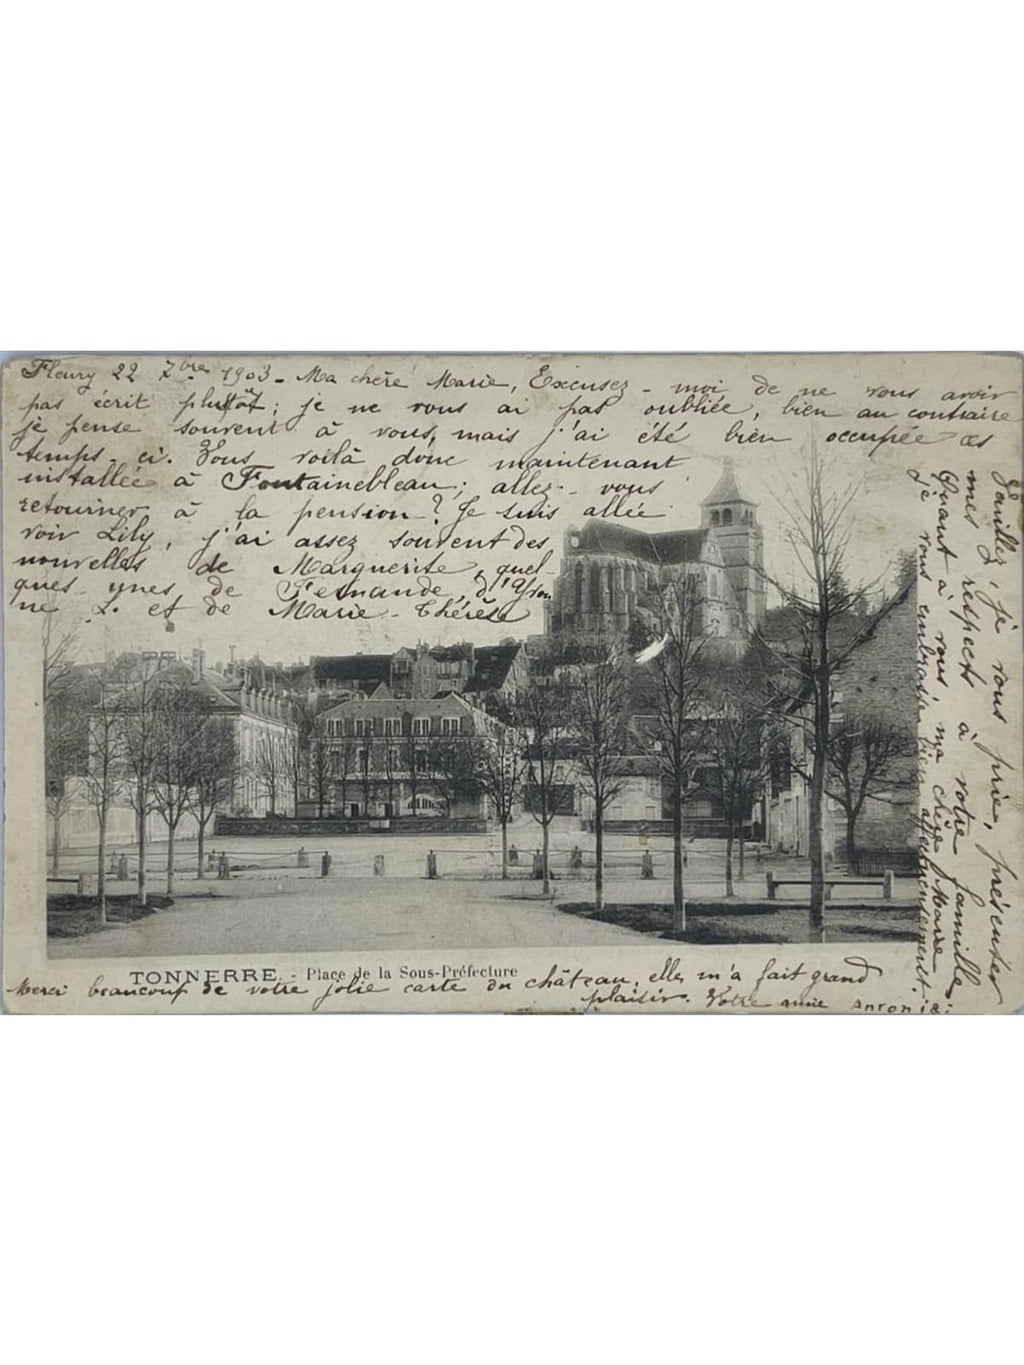 Fleury 22 7bre 1903 - Ma chère Marie, Excusez-moi de ne vous avoir
pas écrit pluttôt; je ne vous ai pas oubliée, bien au contraire
je pense souvent à vous, mais j'ai été bien occupée ces
temps-ci. Vous voilà donc maintenant
installée à Fontainebleau; allez-vous
retourner à la pension? Je suis allée
voir Lily, j'ai assez souvent des
nouvelles de Marguerite, quel-
ques unes de Fernande, d'Yvon
ne L. et de Marie-Thérèse
Veuillez, je vous prie, présenter
mes respects à votre famille.
Quant à vous, ma chère Marie
je vous embrasse bien affectueusement.
TONNERRE. - Place de la Sous-Préfecture
Merci beaucoup de votre jolie carte du château, elle m'a fait grand
plaisir. Votre amie Antonia